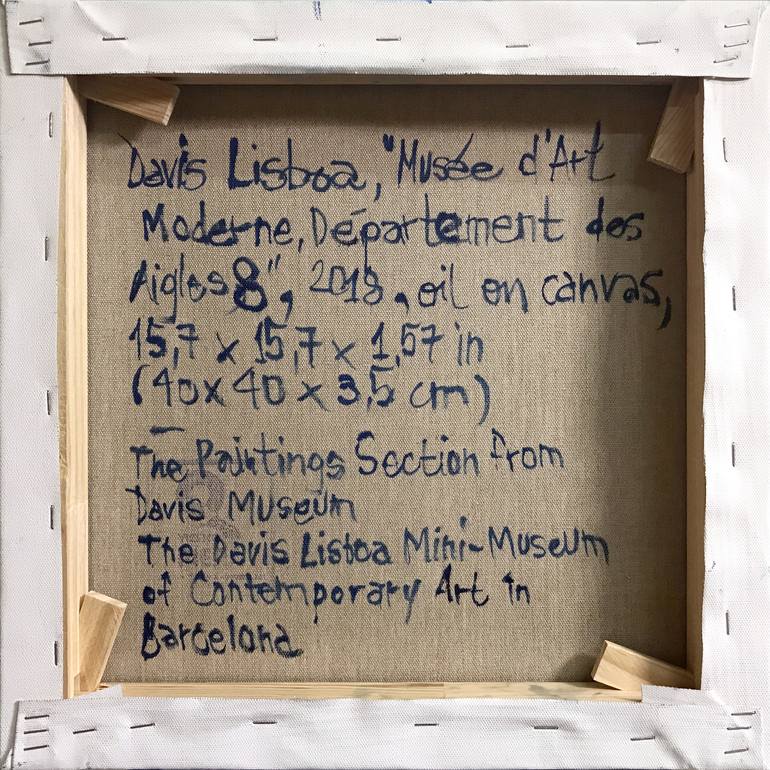 Davis Lisboa, "Musée d'Art
Moderne, Département des
Aigles 8", 2018, oil on canvas,
15,7 x 15,7 x 1,57 in
(40 x 40 x 3,5 cm)
The Paintings Section from
Davis Museum
The Davis Lisboa Mini-Museum
of Contemporary Art in
Barcelona